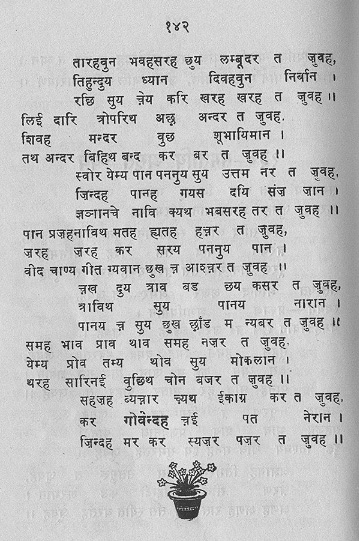 १४२
तारहवुन भवहसरह छुय लम्बूदर त जुवह,
तिहुन्दुय ध्यान दिवहवुन निर्बान ।
रछि सुय न्नेय करि खरह खरह त जुवह ॥
लिई दारि त्रोपरिथ अछ अन्दर त जुवह.
शिवह मन्दर वुछ शूभायिमान ।
तथ अन्दर बिहिथ बन्द कर बर त जुवह ॥
स्वोर येम्य पान पननुय सुय उत्तम नर त जुवह,
ज़िन्दह पानह गयस दयि संज ज़ान ।
ज्ञञानचे नावि क्यथ भबसरह तर त जुवह ॥
पान प्रजह़नाविथ मतह ह्यतह हृन्नर त जुवह,
जरह जरह कर सरय पननुय पान ।
वीद चाण्य गीत ग्यवान छुख न्न आइन्नर त जुवह ॥
न्नख दुय त्राव बड छय कसर त जुवह,
त्राविथ सुय पानय नारान ।
पानय न्न सुय छुख छाँड म न्यबर त जुवह ॥
समह भाव प्राव थाव समह नज़र त जुवह.
येम्य प्रोव तम्य थोव सुय मोकलान ।
थरह सारिनई वुछिथ चोन बजर त जुवह ॥
सहज़ह व्यन्नार च़्यथ ईकाग्र कर त जुवह,
कर गोवेन्दह न्नई पत नेरान ।
ज़िन्दह मर कर स्यज़र पज़र त जुवह ॥